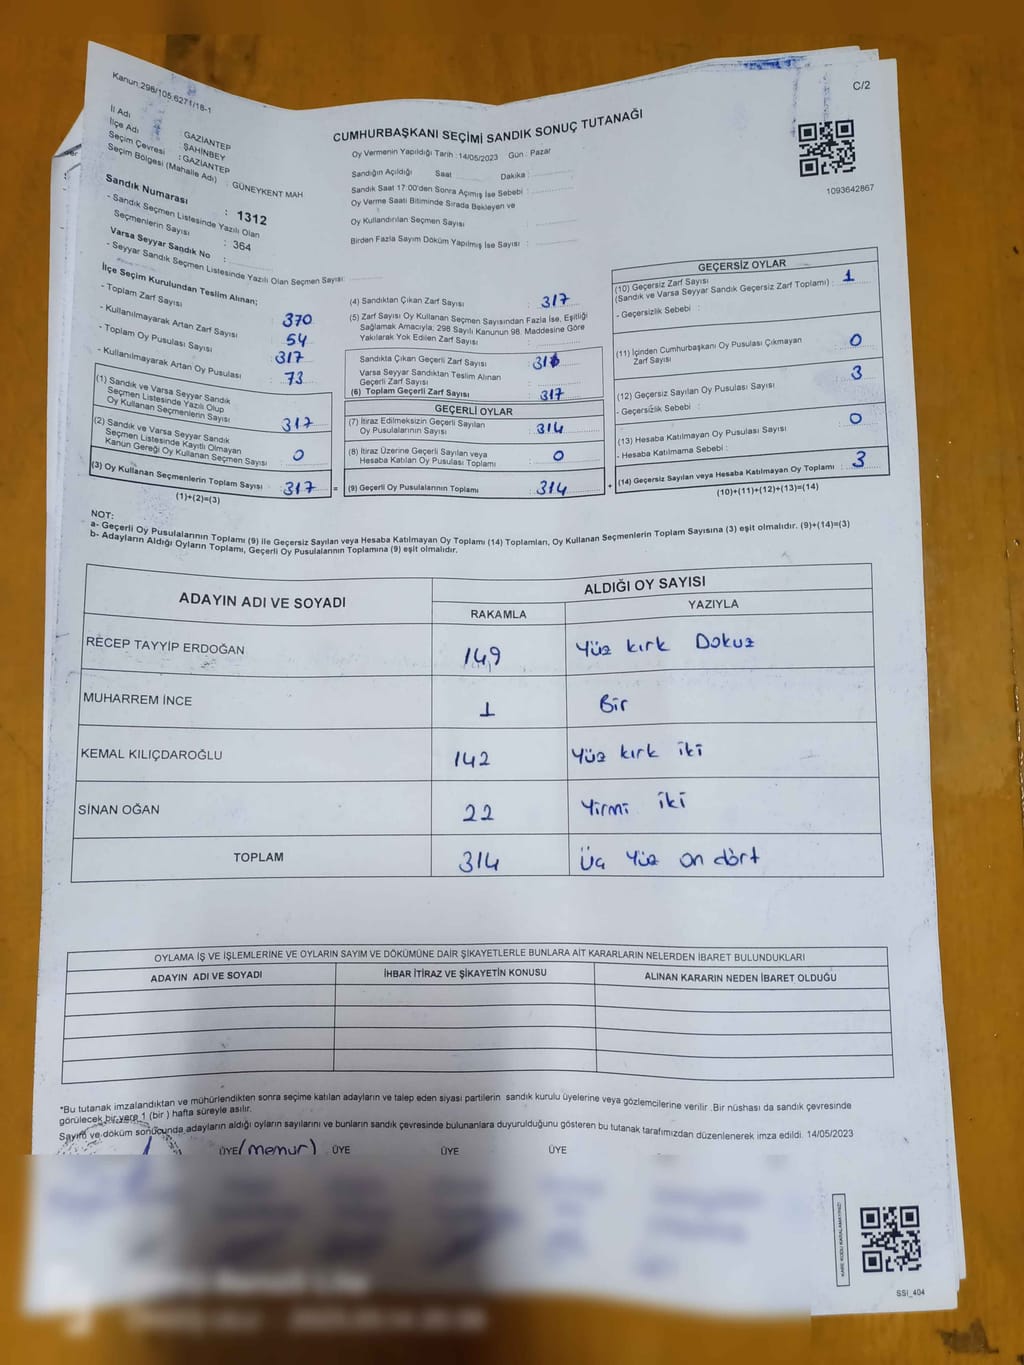 Kanun:298/105,6271/18-1
C/2
CUMHURBAŞKANI SEÇİMİ SANDIK SONUÇ TUTANAĞI
İl Adı : GAZİANTEP
İlçe Adı : ŞAHİNBEY
Seçim Çevresi : GAZİANTEP
Seçim Bölgesi (Mahalle Adı) : GÜNEYKENT MAH
Sandık Numarası : 1312
- Sandık Seçmen Listesinde Yazılı Olan
Seçmenlerin Sayısı : 364
Varsa Seyyar Sandık No :
- Seyyar Sandık Seçmen Listesinde Yazılı Olan Seçmen Sayısı:
Oy Vermenin Yapıldığı Tarih : 14/05/2023 Gün : Pazar
Sandığın Açıldığı Saat Dakika :
Sandık Saat 17.00'den Sonra Açımış İse Sebebi :
Oy Verme Saati Bitiminde Sırada Bekleyen ve
Oy Kullandırılan Seçmen Sayısı
Birden Fazla Sayım Döküm Yapılmış İse Sayısı :
1093642867
İlçe Seçim Kurulundan Teslim Alınan;
- Toplam Zarf Sayısı : 370
- Kullanılmayarak Artan Zarf Sayısı : 54
- Toplam Oy Pusulası Sayısı : 317
- Kullanılmayarak Artan Oy Pusulası : 73
(1) Sandık ve Varsa Seyyar Sandık
Seçmen Listesinde Yazılı Olup
Oy Kullanan Seçmenlerin Sayısı : 317
(2) Sandık ve Varsa Seyyar Sandık
Seçmen Listesinde Kayıtlı Olmayan
Kanun Gereği Oy Kullanan Seçmen Sayısı : 0
(3) Oy Kullanan Seçmenlerin Toplam Sayısı : 317
(1)+(2)=(3)
(4) Sandıktan Çıkan Zarf Sayısı : 317
(5) Zarf Sayısı Oy Kullanan Seçmen Sayısından Fazla İse, Eşitliği
Sağlamak Amacıyla; 298 Sayılı Kanunun 98. Maddesine Göre
Yakılarak Yok Edilen Zarf Sayısı :
Sandıkta Çıkan Geçerli Zarf Sayısı :
Varsa Seyyar Sandıktan Teslim Alınan
Geçerli Zarf Sayısı :
(6) Toplam Geçerli Zarf Sayısı : 317
GEÇERLİ OYLAR
(7) İtiraz Edilmeksizin Geçerli Sayılan
Oy Pusulalarının Sayısı : 314
(8) İtiraz Üzerine Geçerli Sayılan veya
Hesaba Katılan Oy Pusulası Toplamı : 0
= (9) Geçerli Oy Pusulalarının Toplamı : 314
GEÇERSİZ OYLAR
(10) Geçersiz Zarf Sayısı
(Sandık ve Varsa Seyyar Sandık Geçersiz Zarf Toplamı) : 1
- Geçersizlik Sebebi :
(11) İçinden Cumhurbaşkanı Oy Pusulası Çıkmayan
Zarf Sayısı : 0
(12) Geçersiz Sayılan Oy Pusulası Sayısı : 3
- Geçersizlik Sebebi :
(13) Hesaba Katılmayan Oy Pusulası Sayısı : 0
- Hesaba Katılmama Sebebi :
+ (14) Geçersiz Sayılan veya Hesaba Katılmayan Oy Toplamı : 3
(10)+(11)+(12)+(13)=(14)
NOT:
a- Geçerli Oy Pusulalarının Toplamı (9) ile Geçersiz Sayılan veya Hesaba Katılmayan Oy Toplamı (14) Toplamları, Oy Kullanan Seçmenlerin Toplam Sayısına (3) eşit olmalıdır. (9)+(14)=(3)
b- Adayların Aldığı Oyların Toplamı, Geçerli Oy Pusulalarının Toplamına (9) eşit olmalıdır.
ADAYIN ADI VE SOYADI
ALDIĞI OY SAYISI
RAKAMLA YAZIYLA
RECEP TAYYİP ERDOĞAN 149 Yüz kırk Dokuz
MUHARREM İNCE 1 Bir
KEMAL KILIÇDAROĞLU 142 Yüz kırk iki
SİNAN OĞAN 22 Yirmi iki
TOPLAM 314 Üç Yüz on dört
OYLAMA İŞ VE İŞLEMLERİNE VE OYLARIN SAYIM VE DÖKÜMÜNE DAİR ŞİKAYETLERLE BUNLARA AİT KARARLARIN NELERDEN İBARET BULUNDUKLARI
ADAYIN ADI VE SOYADI İHBAR İTİRAZ VE ŞİKAYETİN KONUSU ALINAN KARARIN NEDEN İBARET OLDUĞU
*Bu tutanak imzalandıktan ve mühürlendikten sonra seçime katılan adayların ve talep eden siyasi partilerin sandık kurulu üyelerine veya gözlemcilerine verilir .Bir nüshası da sandık çevresinde
görülecek bir yere 1 (bir ) hafta süreyle asılır.
Sayım ve döküm sonucunda adayların aldığı oyların sayılarını ve bunların sandık çevresinde bulunanlara duyurulduğunu gösteren bu tutanak tarafımızdan düzenlenerek imza edildi. 14/05/2023
ÜYE (memur) ÜYE ÜYE ÜYE
KARE KODU KARALAMAYINIZ!
SSI_404